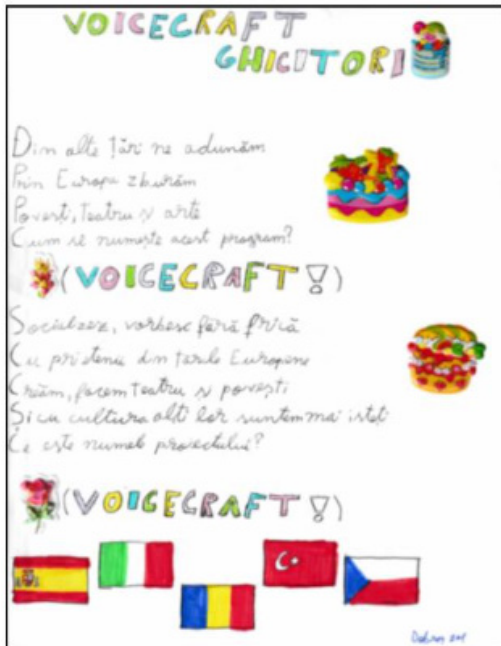 VOICECRAFT
GHICITORI
Din alte țări ne adunăm
Prin Europa zburăm
Povești, teatru și arte
Cum se numește acest program?
(VOICECRAFT!)
Socializez, vorbesc fără frică
Cu prietenii din țările Europene
Creăm, facem teatru și povești
Și cu cultura altor suntem mai isteți
Ce este numele proiectului?
(VOICECRAFT!)